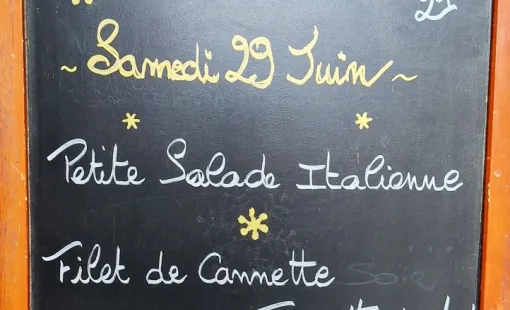 ~ Samedi 29 Juin ~
Petite Salade Italienne
Filet de Cannette Soir